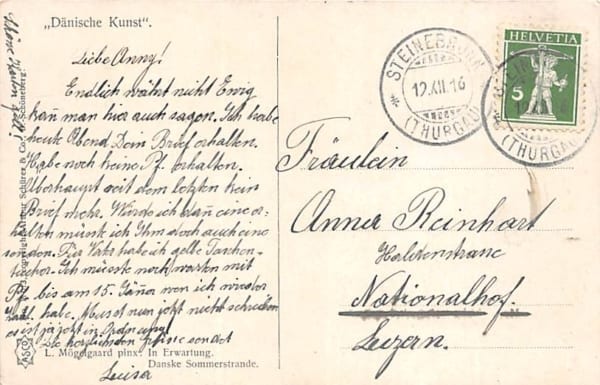 „Dänische Kunst“.
Liebe Anny!
Endlich währt nicht Ewig
kan̄ man hier auch sagen. Ich habe
heute Abend Dein Brief erhalten.
Habe noch keine Pf. erhalten.
Überhaupt seit dem letzten kein
Brief mehr. Würde ich dan̄ eine er-
halten müsste ich Ihm doch auch eine
senden. Für Vater habe ich gelbe Taschen-
tücher. Ich müsste noch warten mit
Pf. bis am 15. Jänner wen ich wieder
habe. Must nun jetzt nicht schreiben
es ist ja jetzt in Ordnung
sendet
Luisa
L. Mögelgaard pinx. In Erwartung.
Danske Sommerstrande.
ASCO
Copyright Arthur Schürer & Co., Schöneberg.
STEINEBRUNN
12.XII.16
(THURGAU)
HELVETIA
5
STEINEBRUNN
(THURGAU)
Fräulein
Anna Reinhart
Haldenstrasse
Nationalhof.
Luzern.